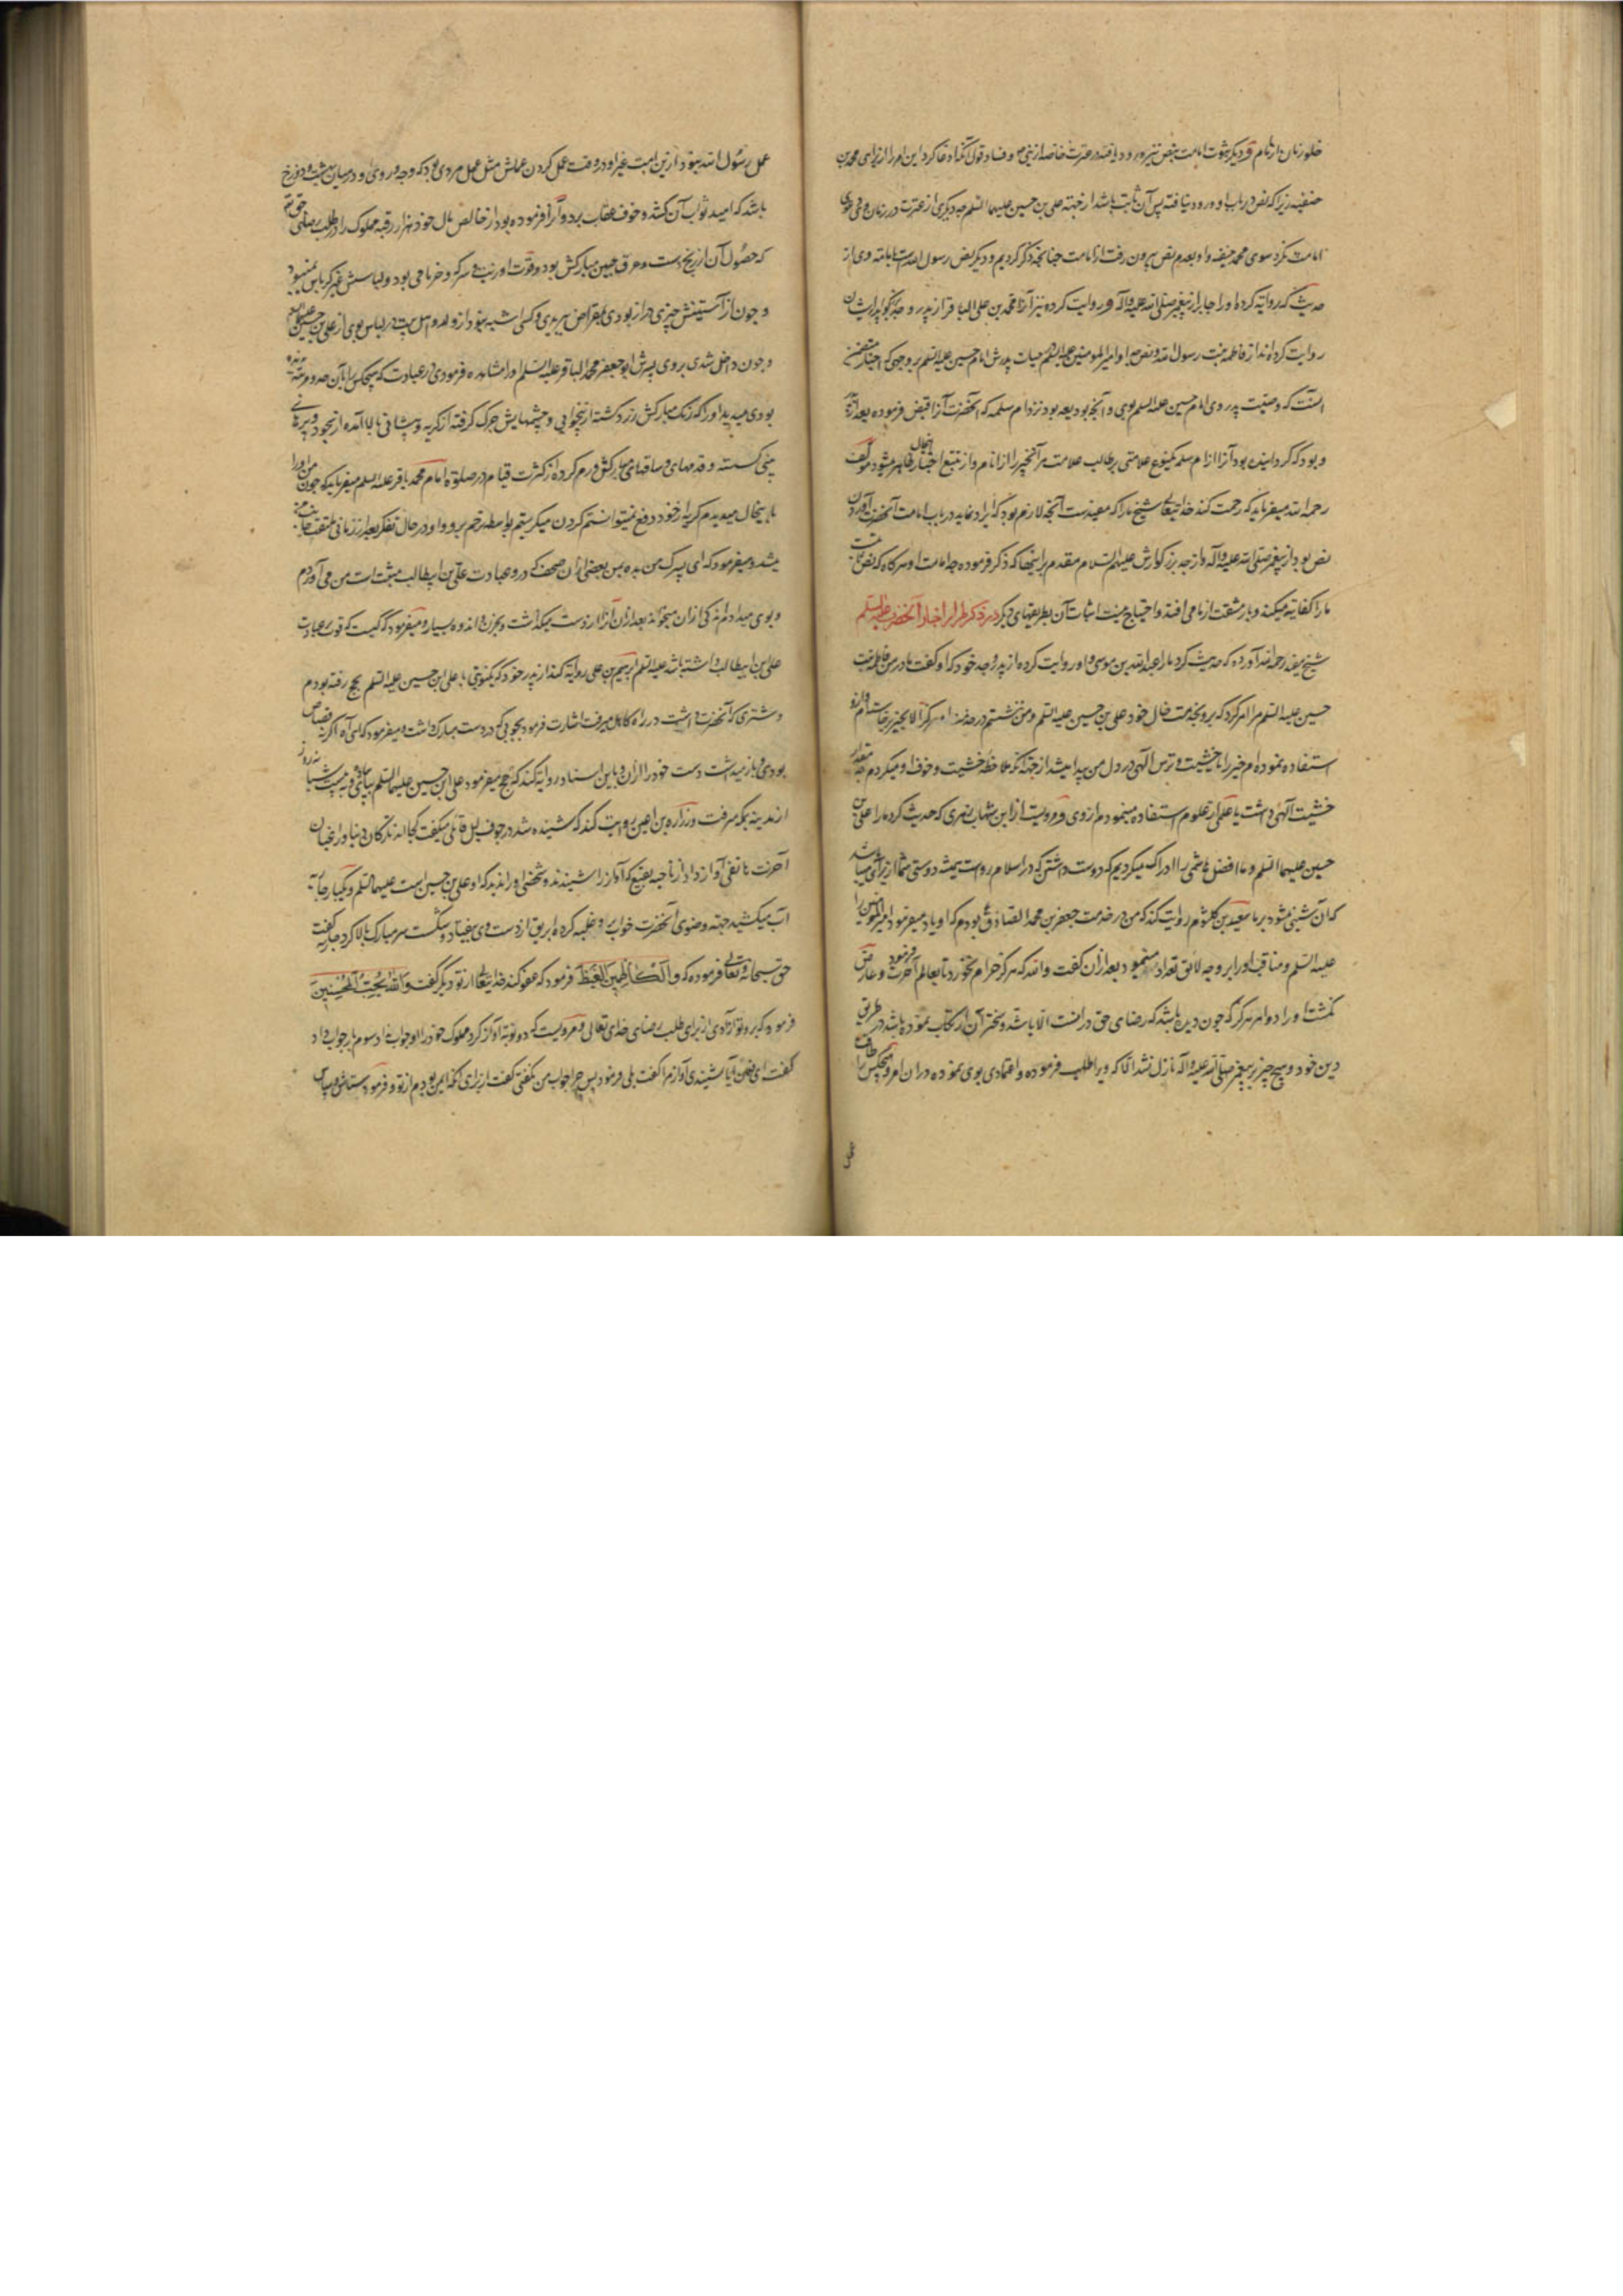 خلو زمان از امام و دیگر ثبوت امامت بنص نیز ورود یافته در عترت خاصه از نبی ص و فساد قول آنکه ادعا کرد این امر را از برای محمد بن
حنفیه زیرا که نص در باب او ورود نیافته پس آن ثابت باشد از جهته علی بن حسین علیهما السلم چه دیگری از عترت در زمان وی دعوی
امامت نکرد سوی محمد حنفیه و او بعدم نص بیرون رفت از امامت چنانچه ذکر کردیم و دیگر نص رسول الله است بامامة وی از
حدیث که روایته کرده اورا جابر از پیغمبر صلی الله علیه و آله و روایت کرده نیز آنرا محمد بن علی الباقر از پدر و جد بزرگوار ایشان
روایت کرده اند از فاطمه بنت رسول الله و نص جد او امیر المومنین علیهم السلم در حیات پدرش امام حسین علیه السلم بر وجهی که اخبار متضمن
آنست که وصیت پدر وی امام حسین علیه السلم بوی و آنچه بودیعه بود نزد ام سلمه که آنحضرت آنرا قبض فرموده بعد از پدر
و بود که گردانیده بود آنرا از ام سلمه بیک نوع علامتی بر طالب علامت مر آنچیز را از انام و از تتبع اخبار انحال ظاهر میشود مولف
رحمه الله میفرماید که رحمت کند خدایتعالی شیخ مارا که مفیدست آنچه لازم بود که ایراد نماید در باب امامت آنحضرت آوردن
نص بود از پیغمبر صلی الله علیه و آله و از جد بزرگوارش علیهم السلام مقدم بر اینها که ذکر فرموده چه امامت او هرگاه که بنص ثابت
مارا کفایته میکند و بار مشقت از ما می افتد و احتیاج نیست اثبات آن بطریقهای دیگر در ذکر طرفی از اخبار آنحضرت علیه السلم
شیخ مفید رحمه الله آورده که حدیث کرد مارا عبد الله بن موسی و او روایت کرده از پدر و جد خود که او گفت مادر من فاطمه بنت
حسین علیه السلم مرا امر کرد که برو بخدمت خال خود علی بن حسین علیه السلم و من ننشستم در خدمت او هرگز الا بخیر برخاستم از او
استفاده نموده ام خیر را یا خشیت و ترس الهی در دل من پیدا میشد از جهته آنکه ملاحظه خشیت و خوف او میکردم چه مقدار
خشیت الهی داشت یا علمی از علوم استفاده مینمودم از وی و مرویست از ابن شهاب زهری که حدیث کرد مارا علی بن
حسین علیهما السلم و ما افضل هاشمی را ادراک میکردیم که دوست داشتن که در اسلام رواست همیشه دوستی شما از برای ما میباشد
که آن شینی میشود بر ما سعید بن کلثوم روایت کند که من در خدمت جعفر بن محمد الصادق بودم که او یاد میفرمود امیر المومنین را
علیه السلم و مناقب اورا بر وجه لائق تعداد مینمود بعد از آن گفت والله که هرگز حرام نخورد تا بعالم آخرت فرمود و عارض
نگشت اورا دو امر هرگز که چون دیده باشد که رضای حق در انست الا باشد و سختر آن ارتکاب نموده باشد در طریق
دین خود و هیچ چیز بر پیغمبر صلی الله علیه و آله نازل نشد الا که ویرا طلب فرموده و اعتمادی بوی نموده در ان امر و هیچکس را طاقت
عمل
عمل رسول الله نبود از این امت غیر او در وقت عمل کردن عملش مثل عمل مردی بود که وجه و روی او در میان بهشت و دوزخ
باشد که امید ثواب آن کشد و خوف عقاب برد و آزاد فرموده بود از خالص مال خود هزار رقبه مملوک را در طلب رضای حق تع
که حصول آن از رنج دست و عرق جبین مبارکش بود و قوت او زیت و سرکه و خرما می بود و لباسش غیر کرباس نمیبود
و چون از آستینش چیزی دراز بودی بمقراض ببریدی و کسی اشبه نبود از ولد و اهل بیت در لباس بوی از علی بن حسین علیهم السلم
و چون داخل شدی بر وی پسرش ابو جعفر محمد الباقر علیه السلم اورا مشاهده فرمودی از عبادت که هیچکس را بآن حد و مرتبه ندیده
بودی میدید اورا که رنگ مبارکش زرد گشته از بیخوابی و چشمهایش چرک گرفته از گریه و پیشانی تا بالا آمده از سجود و پرهای
بینی گسسته و قدمهای و ساقهای مبارکش ورم کرده از کثرت قیام در صلوة امام محمد باقر علیه السلم میفرماید که چون من اورا
باینحال میدیدم گریه از خود دفع نمیتوانستم کردن میگریستم بواسطه ترحم برو و او در حال تفکر بعد از زمانی ملتفت بجانب من
میشد و میفرمود که ای پسرک من بده بمن بعضی از آن صحف که درو عبادت علی بن ابیطالب مثبت است من می آوردم
و بوی میدادم اندکی از آن میخواند بعد از آن آنرا از دست میگذاشت بحزن و اندوه بسیار و میفرمود که کیست که قوت عبادت
علی ابن ابیطالب داشته باشد علیه السلم ابرهیم بن علی روایة کند از پدر خود که یکنوبتی با علی ابن حسین علیه السلم بحج رفته بودم
و شتری که آنحضرت داشت در راه کاهل میرفت اشارت فرمود بچوبی که در دست مبارک داشت و میفرمود که ای آه اگر نه قصاص
بودی و باز میداشت دست خود را از آن و باین اسناد روایة کند که حج میفرمود علی ابن حسین علیهما السلم پیاده و به بیست شبانه روز
از مدینه بمکه میرفت و زراره بن اعین روایت کند که شنیده شد در جوف لیل قائلی میگفت کجا اند تارکان دنیا و راغبان
آخرت هاتفی آواز داد از ناحیه بقیع که آواز را شنیدند و شخص را ندیدند که او علی بن حسین است علیهما السلم و یکبار جاریه
آب میکشید جهته وضوی آنحضرت خواب برو غلبه کرده ابریق از دست وی بیفتاد و بشکست سر مبارک بالا کرد جاریه گفت
حق سبحانه و تعالی فرموده که و الکاظمین الغیظ فرمود که عفو کند خدایتعالی از تو دیگر گفت و الله یحب المحسنین
فرمود که برو تو آزادی از برای طلب رضای خدای تعالی و مرویست که دو نوبة آواز کرد مملوک خود را او جواب نداد سوم بار جواب داد
گفت ای فلان آیا نشنیدی آواز مرا گفت بلی فرمود پس چرا جواب من نگفتی گفت از برای آنکه ایمن بودم از تو و فرمود ستایش و سپاس